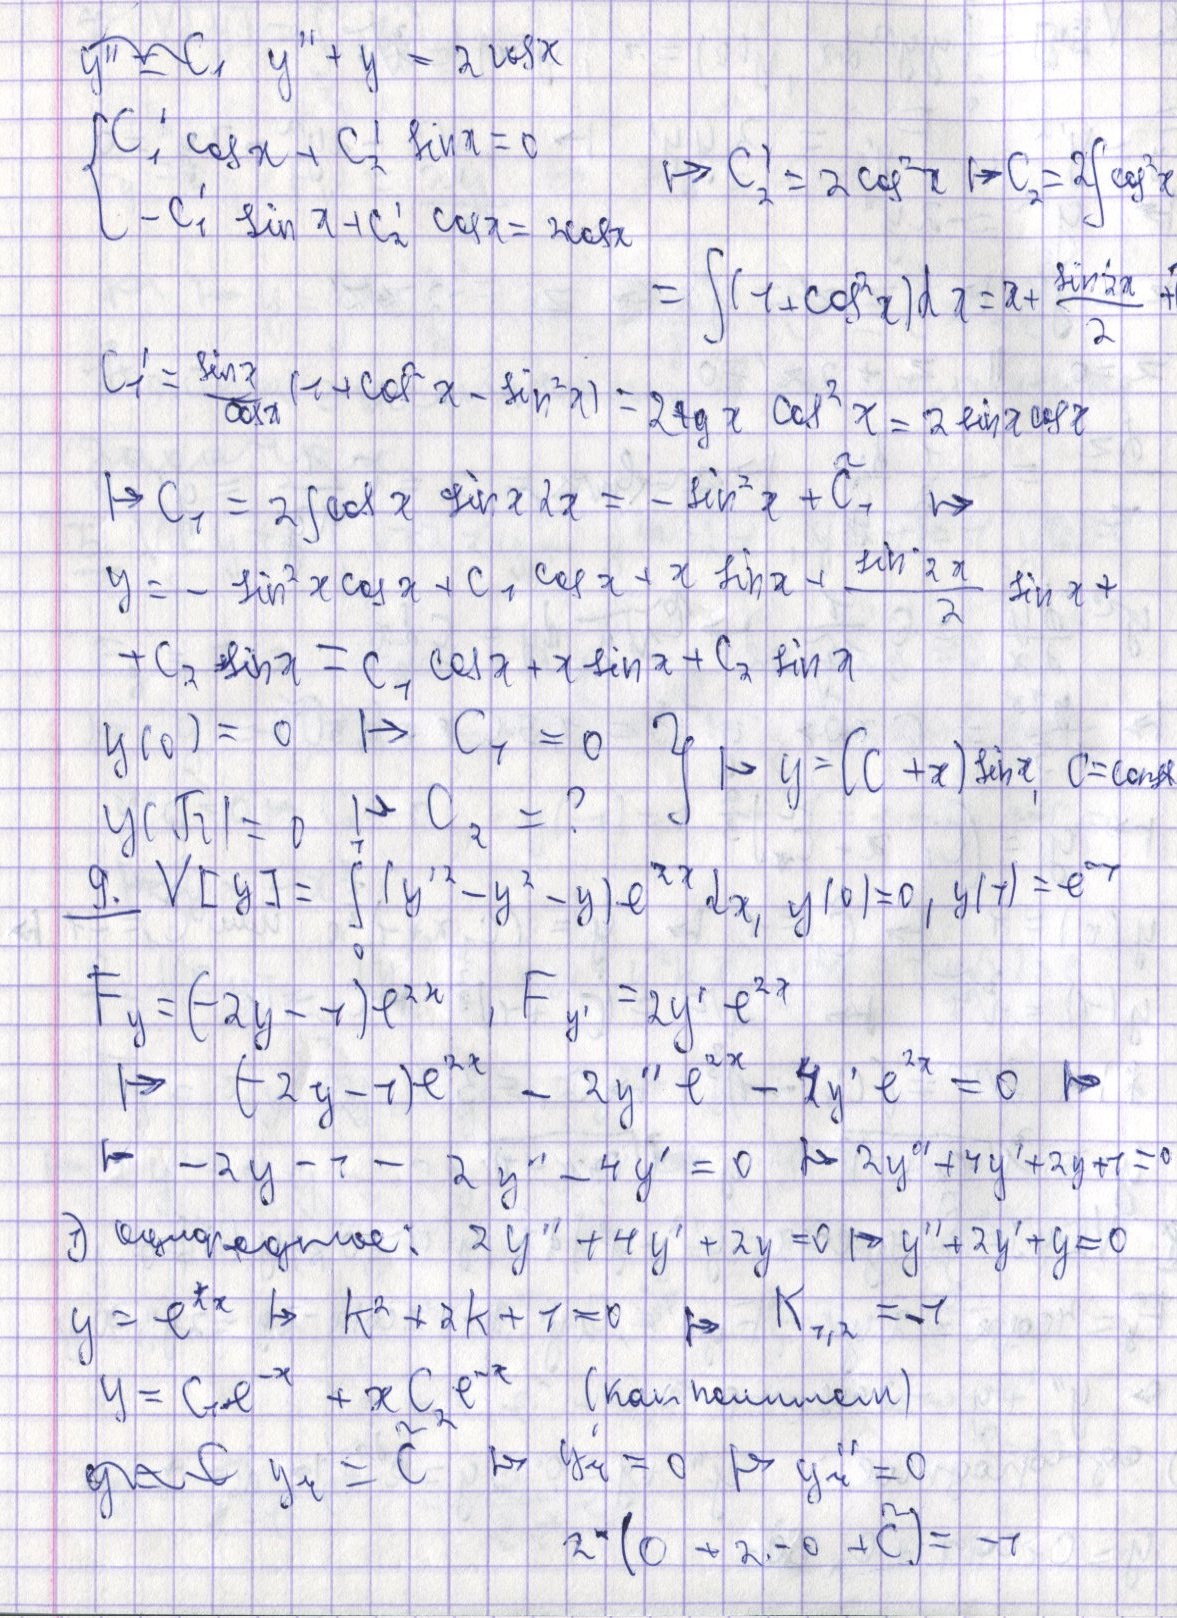 y'' + y = 2 cos x
{ C₁' cos x + C₂' sin x = 0
- C₁' sin x + C₂' cos x = 2cos x
↦ C₂' = 2 cos² x ↦ C₂ = 2∫cos² x
= ∫(1 + cos² x) dx = x + sin 2x / 2 +
C₁' = sin x / cos x (1 + cos² x - sin² x) = 2 tg x cos² x = 2 sin x cos x
↦ C₁ = 2∫cos x sin x dx = - sin² x + C̃₁ ↦
y = - sin² x cos x + C₁ cos x + x sin x + sin 2x / 2 sin x +
+ C₂ sin x = C₁ cos x + x sin x + C₂ sin x
y(0) = 0 ↦ C₁ = 0 } ↦ y = (C + x) sin x, C = const
y(π) = 0 ↦ C₂ = ?
9. V[y] = ∫₀¹ (y'² - y² - y) e^{2x} dx, y(0) = 0, y(1) = e^{-1}
F_y = (-2y - 1) e^{2x}, F_{y'} = 2y' e^{2x}
↦ (-2y - 1) e^{2x} - 2y'' e^{2x} - 4y' e^{2x} = 0 ↦
↦ -2y - 1 - 2y'' - 4y' = 0 ↦ 2y'' + 4y' + 2y + 1 = 0
1) однородное: 2y'' + 4y' + 2y = 0 ↦ y'' + 2y' + y = 0
y = e^{kx} ↦ k² + 2k + 1 = 0 ↦ K₁,₂ = -1
y = C₁e^{-x} + x C₂ e^{-x} (как полином)
y_ч = C̃ ↦ y_ч' = 0 ↦ y_ч'' = 0
2·(0 + 2·0 + C̃) = -1